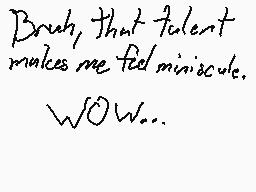 Bruh, that talent
makes me feel miniscule.
WOW...